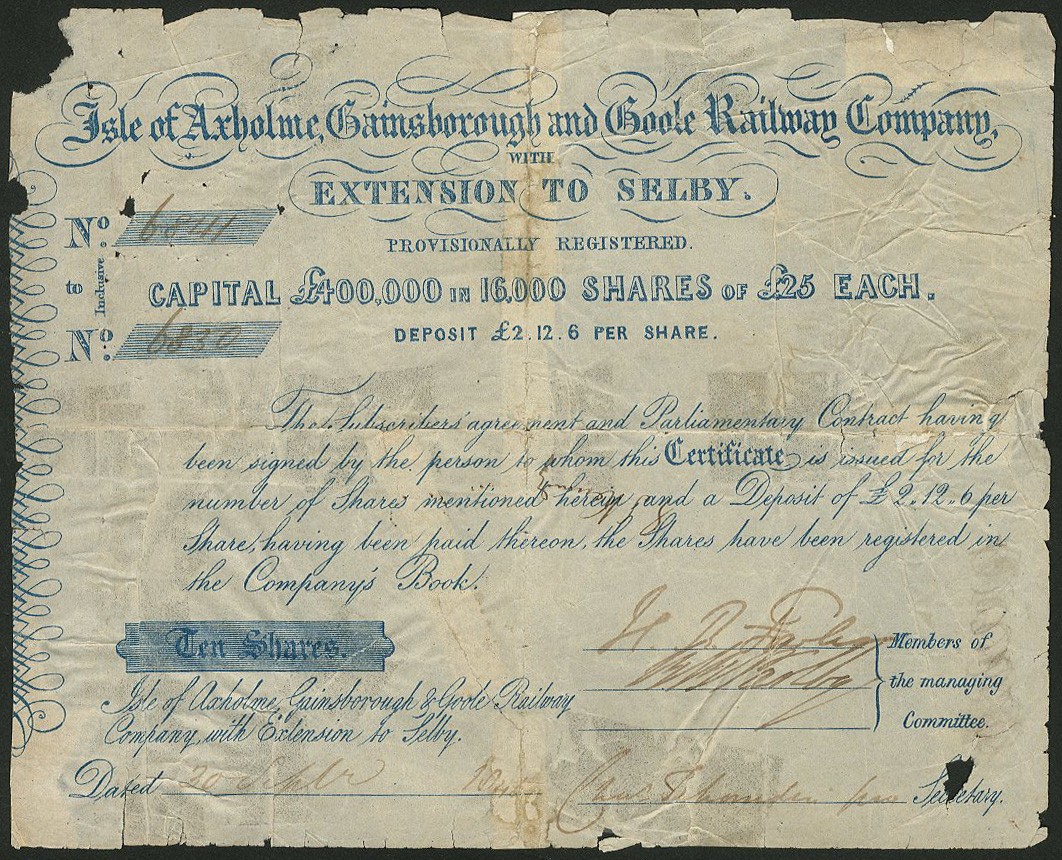 Isle of Axholme, Gainsborough and Goole Railway Company,
WITH
EXTENSION TO SELBY.
PROVISIONALLY REGISTERED.
Nº.
to Inclusive
Nº.
CAPITAL £400,000 IN 16,000 SHARES OF £25 EACH.
DEPOSIT £2.12.6 PER SHARE.
The Subscribers' agreement and Parliamentary Contract having
been signed by the person to whom this Certificate is issued for the
number of Shares mentioned herein and a Deposit of £2.12.6 per
Share, having been paid thereon, the Shares have been registered in
the Company's Book.
Ten Shares.
Members of
the managing
Committee.
Isle of Axholme, Gainsborough & Goole Railway
Company, with Extension to Selby.
Dated 20 Septbr
Secretary.